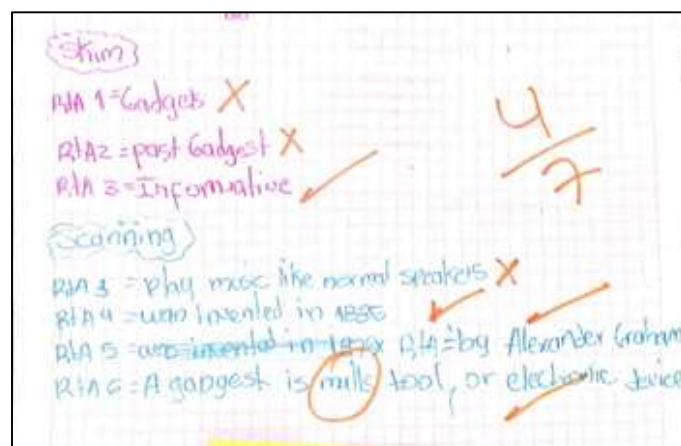 Skim
RtA 1 = Gadgets X
RtA2 = past Gadgest X
RtA 3 = Informative ✓
4/7
Scanning
RtA 3 = play music like normal speakers X
RtA 4 = was invented in ✓
RtA 5 = was invented in RtA = by Alexander Graham ✓
RtA 6 = A gadgest is tool, or electronic device ✓